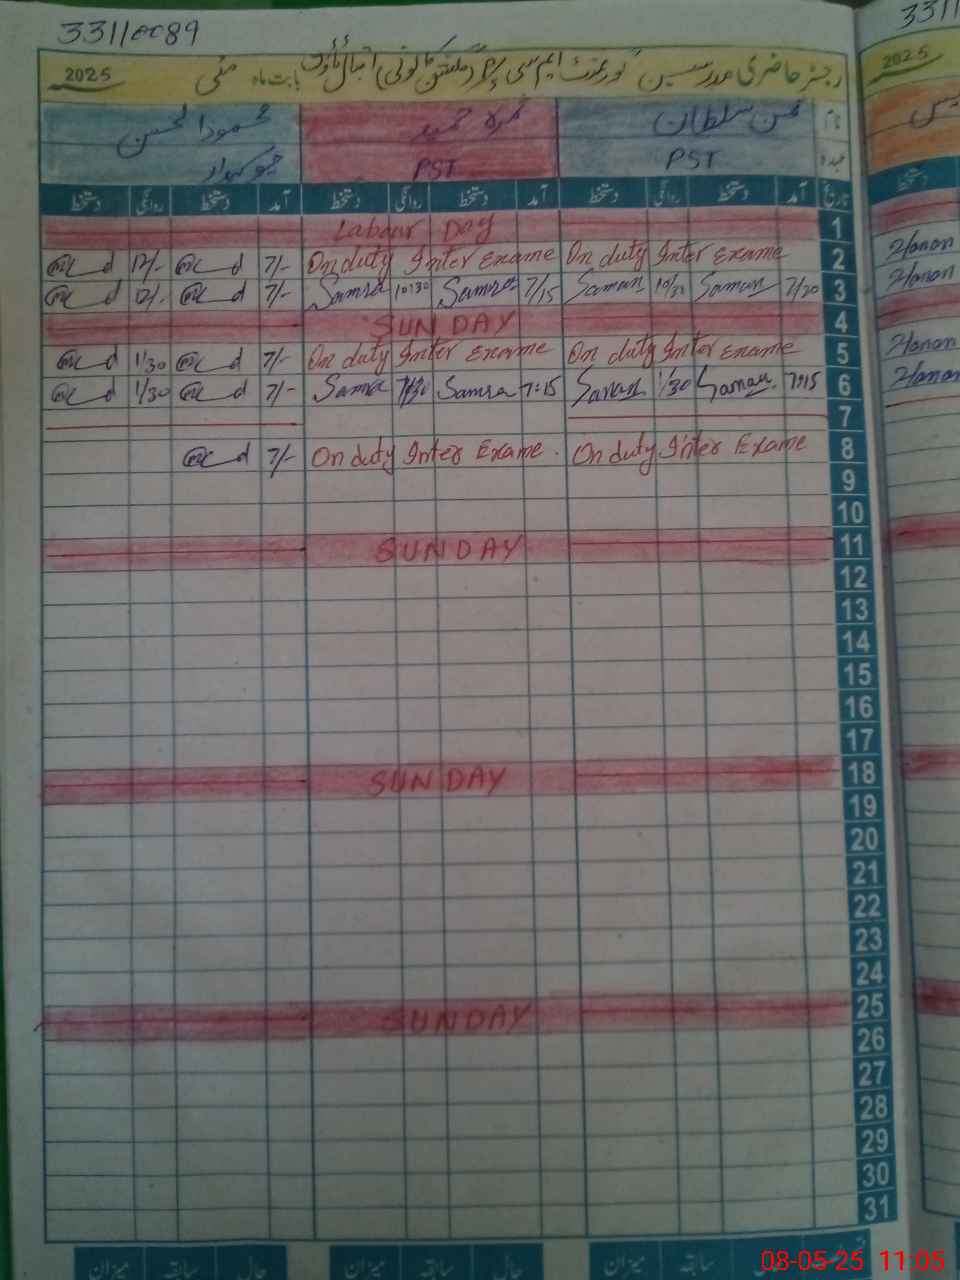 33110089
3311
رجسٹر حاضری مدرسین گورنمنٹ ایم سی (گلشن کالونی) اقبال ٹاؤن بابت ماہ مئی 2025
2025
نام سلطان حمید محمود الحسن
عہدہ PST PST چوکیدار
تاریخ آمد دستخط روانگی دستخط آمد دستخط روانگی دستخط آمد دستخط روانگی دستخط
دستخط
1 Labour Day
2 On duty Inter Exame On duty Inter Exame 7/- 12/- Hanan
3 7/20 Saman 10/30 Saman 7/15 Samra 10:30 Samra 7/- 12/- Hanan
4 SUNDAY
5 On duty Inter Exame On duty Inter Exame 7/- 1/30 Hanan
6 7:15 Saman 1/30 Saman 7:15 Samra Samra 7/- 1/30 Hanan
7
8 On duty Inter Exame On duty Inter Exame. 7/-
9
10
11 SUNDAY
12
13
14
15
16
17
18 SUNDAY
19
20
21
22
23
24
25 SUNDAY
26
27
28
29
30
31
سابقہ میزان حال سابقہ میزان حال سابقہ میزان
08-05-25 11:05